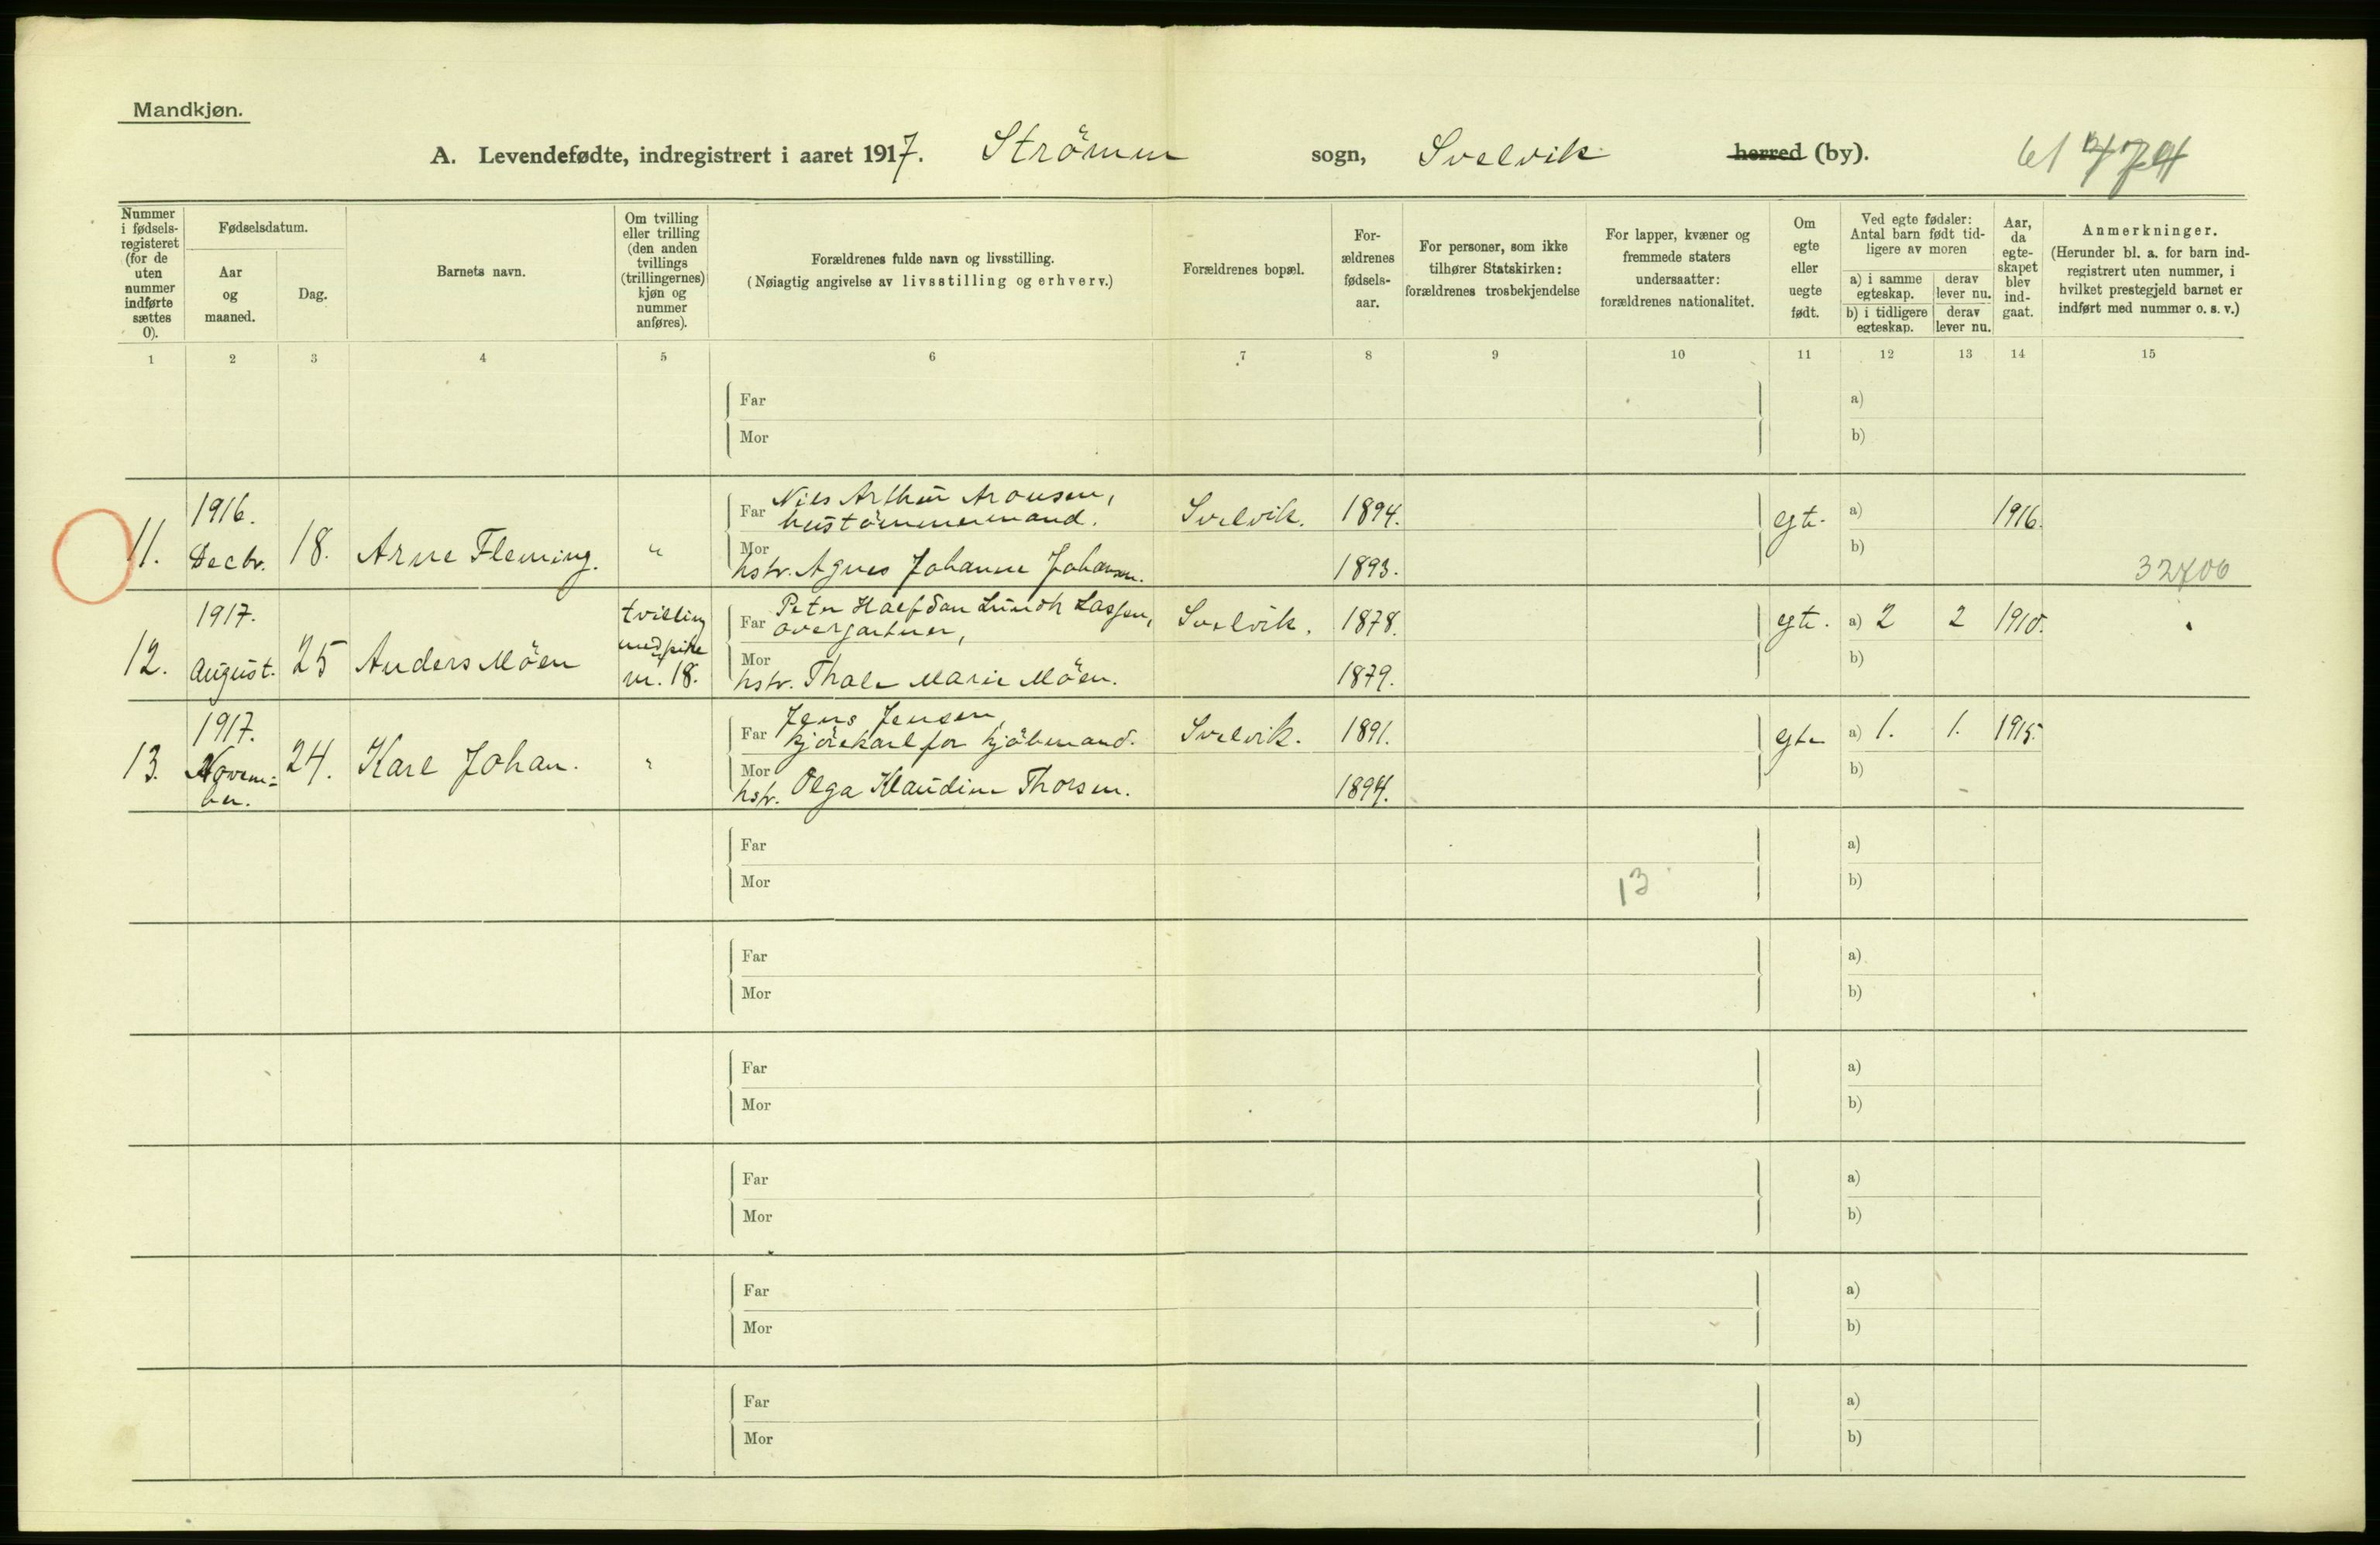 Mandkjøn.
A. Levendefødte, indregistrert i aaret 1917. Strömm sogn, Svelvik herred (by).
Nummer i fødsels-registeret (for de uten nummer indførte sættes 0).
Fødselsdatum.
Aar og maaned.
Dag.
Barnets navn.
Om tvilling eller trilling (den anden tvillings (trillingernes) kjøn og nummer anføres).
Forældrenes fulde navn og livsstilling.
(Nøiagtig angivelse av livsstilling og erhverv.)
Forældrenes bopæl.
For-ældrenes fødsels-aar.
For personer, som ikke tilhører Statskirken: forældrenes trosbekjendelse
For lapper, kvæner og fremmede staters undersaatter: forældrenes nationalitet.
Om egte eller uegte født.
Ved egte fødsler: Antal barn født tid-ligere av moren
a) i samme egteskap.
derav lever nu.
b) i tidligere egteskap.
derav lever nu.
Aar, da egte-skapet blev ind-gaat.
Anmerkninger.
(Herunder bl. a. for barn ind-registrert uten nummer, i hvilket prestegjeld barnet er indført med nummer o. s. v.)
1 2 3 4 5 6 7 8 9 10 11 12 13 14 15
Far a)
Mor b)
11. 1916. Decbr. 18. Arne Fleming. "
Far Nils Arthur Aronsen, hustömmermand. Svelvik. 1894. egte. a) 1916.
Mor hstr. Agnes Johanne Johansen. 1893. b) 32406
12. 1917. August. 25 Anders Möen tvilling med pike nr. 18.
Far Peter Halfdan Lundh Lassen, overgartner, Svelvik. 1878. egte. a) 2 2 1910.
Mor hstr. Thale Marie Möen. 1879. b)
13. 1917. Novem=ber. 24. Karl Johan. "
Far Jens Jensen, kjörekarl for kjöbmand. Svelvik. 1891. egte a) 1. 1. 1915.
Mor hstr. Olga Klaudine Thorsen. 1894. b)
Far a)
Mor 13 b)
Far a)
Mor b)
Far a)
Mor b)
Far a)
Mor b)
Far a)
Mor b)
Far a)
Mor b)